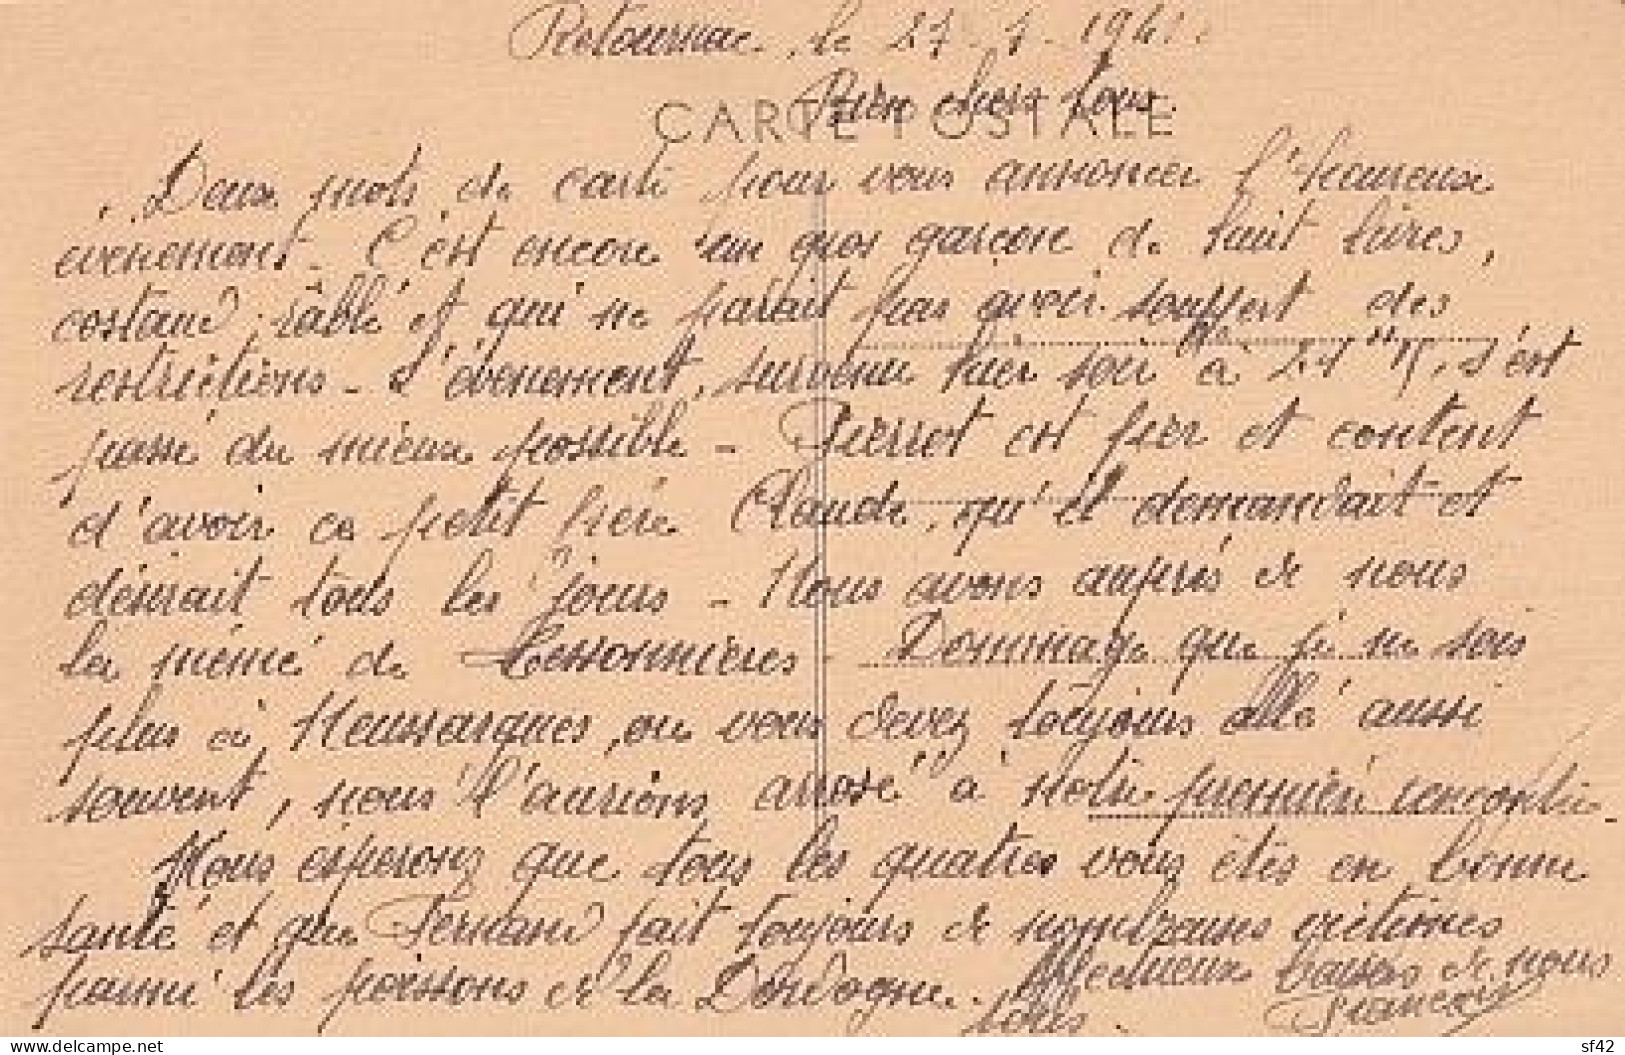 Retournac, le 27-7-1941
Bien chers tous.
CARTE POSTALE
Deux mots de carte pour vous annoncer l'heureux
événement. C'est encore un gros garçon de huit livres,
costaud, râblé et qui ne parait pas avoir souffert des
restrictions - L'événement, survenu hier soir à 21 H 15, s'est
passé du mieux possible - Pierrot est fier et content
d'avoir ce petit frère Claude, qu'il demandait et
désirait tous les jours - Nous avons auprès de nous
la mémé de Lessonnières - Dommage que je ne sois
plus à Neussargues, ou vous devez toujours allé aussi
souvent, nous l'aurions arrosé à notre première rencontre -
Nous espérons que tous les quatres vous êtes en bonne
santé et que Fernand fait toujours de nombreuses victimes
parmi les poissons de la Dordogne. Affectueux baisers de nous
tous. François
delcampe.net
sf42